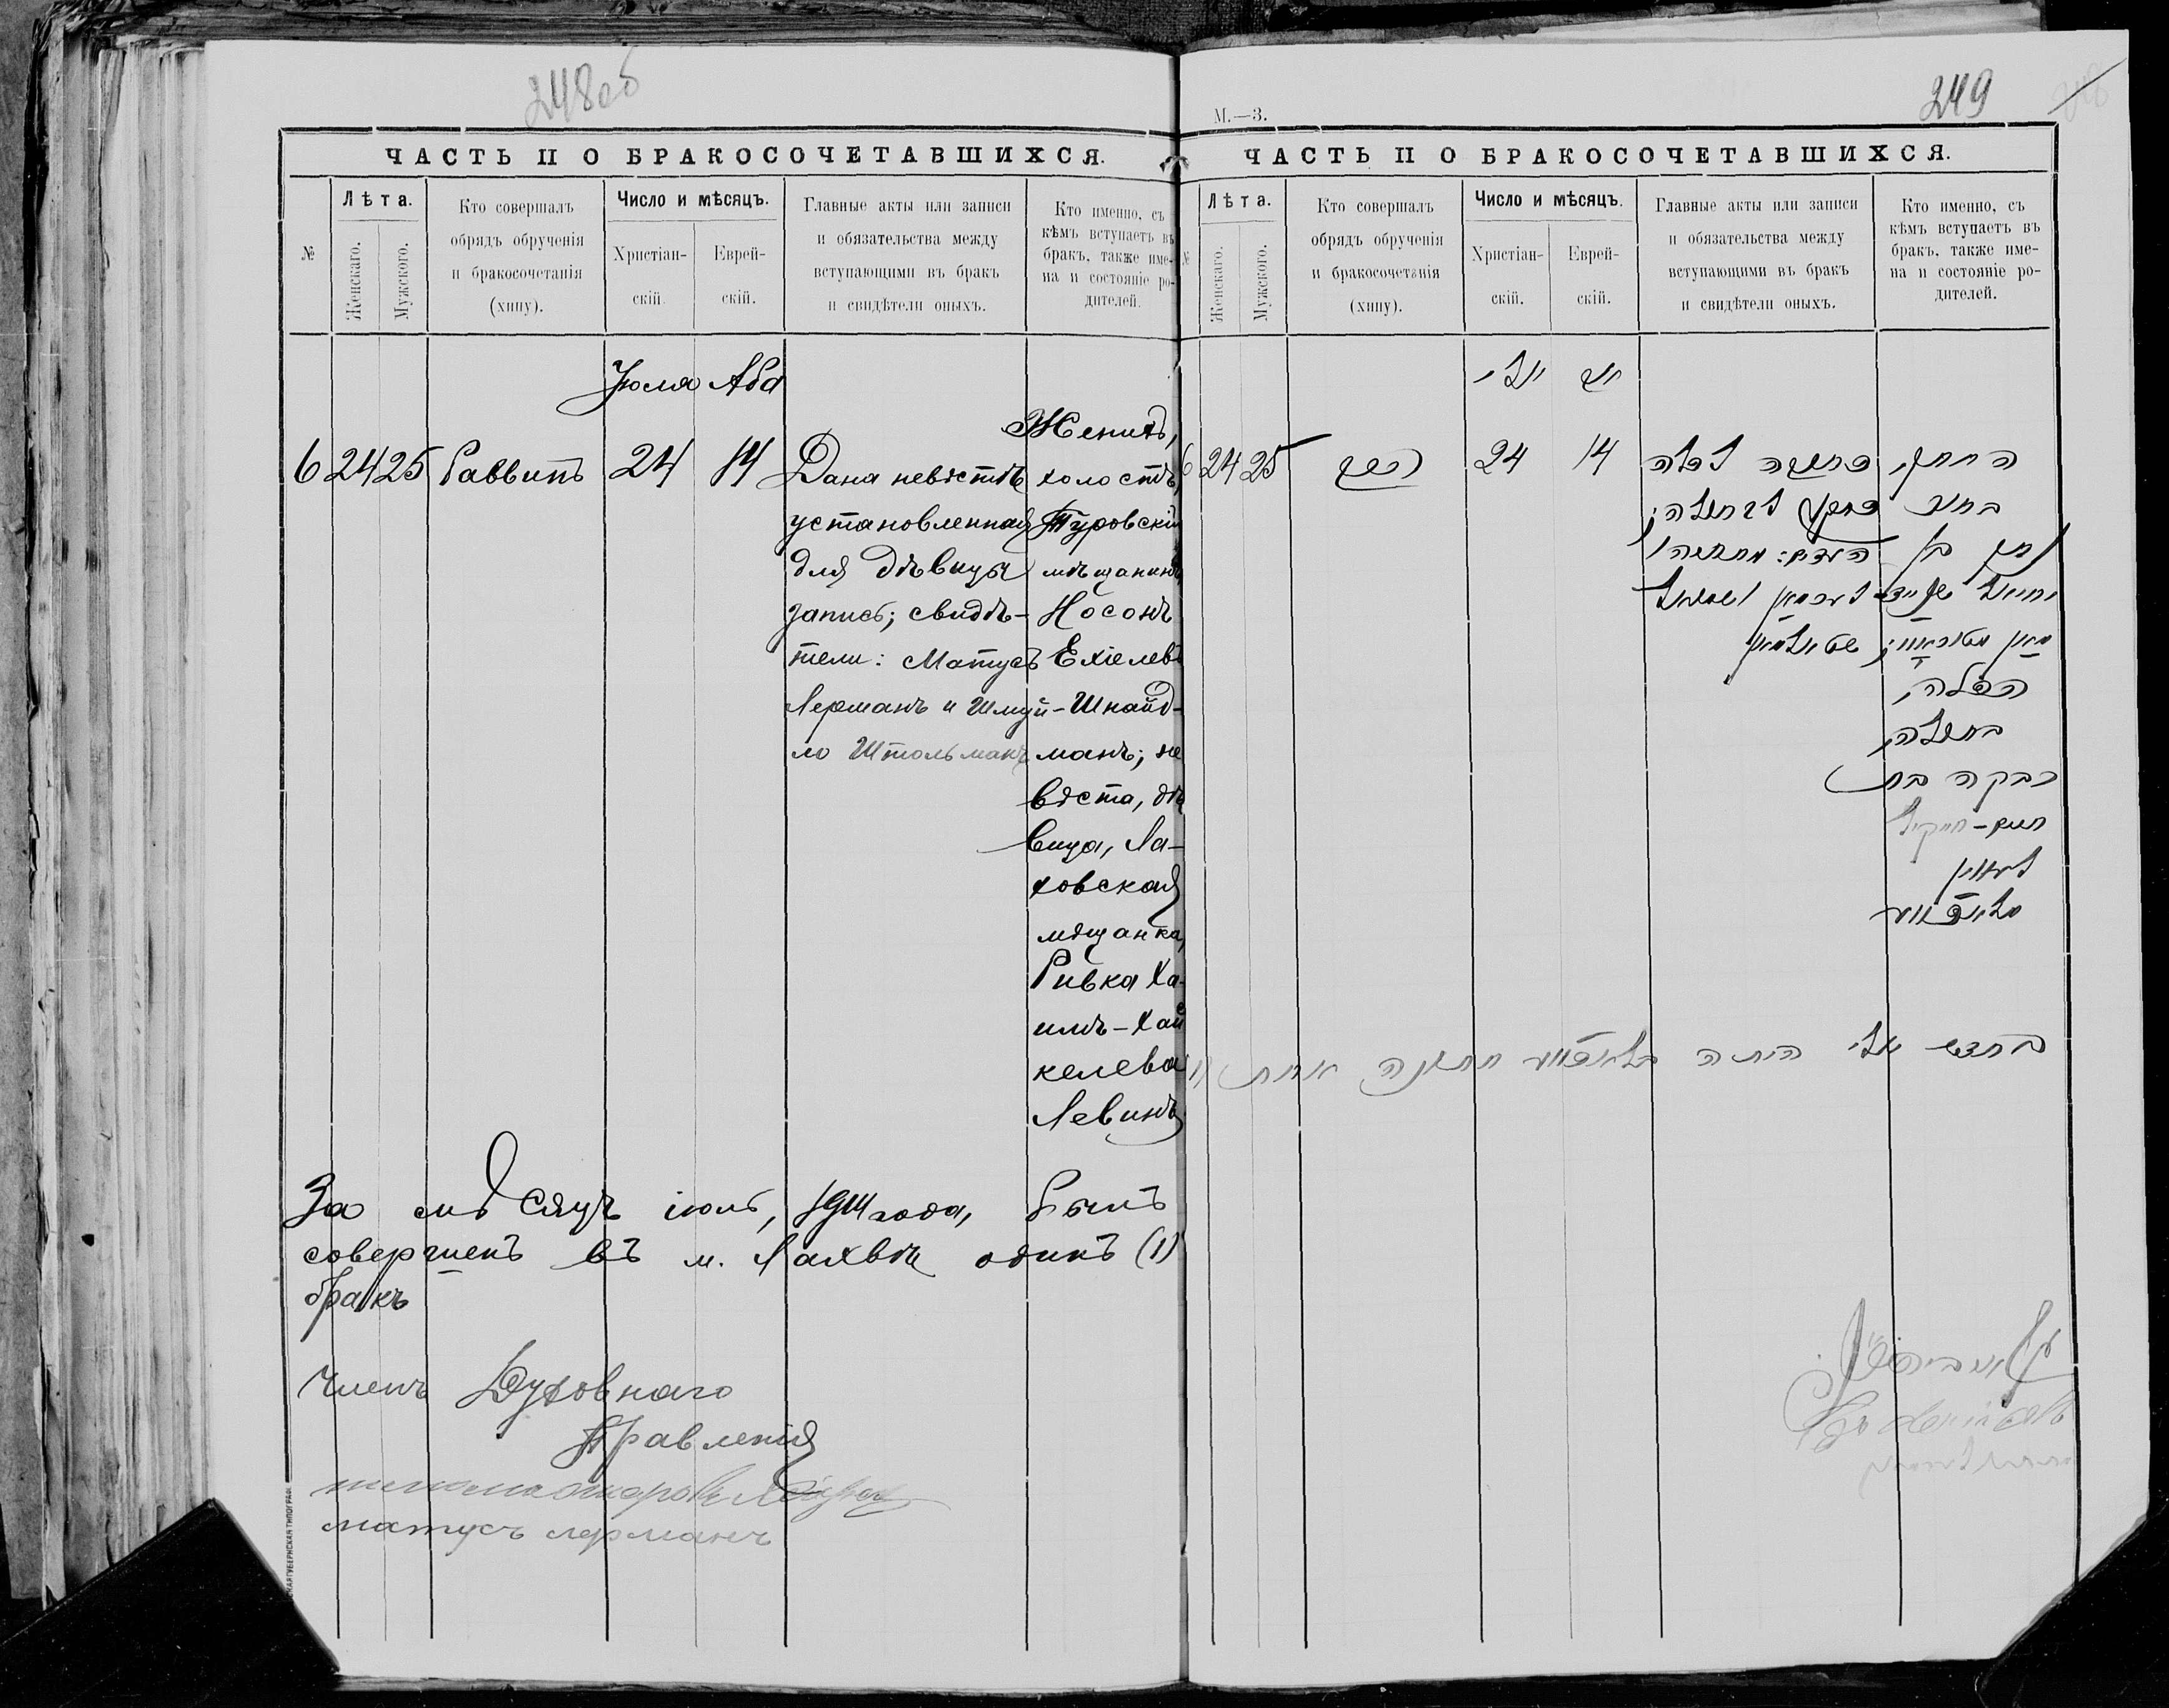 248об
ЧАСТЬ II О БРАКОСОЧЕТАВШИХСЯ.
№
Лѣта.
Женскаго.
Мужскаго.
Кто совершалъ
обрядъ обрученія
и бракосочетанія
(хипу).
Число и мѣсяцъ.
Христіан-
скій.
Еврей-
скій.
Главные акты или записи
и обязательства между
вступающими въ бракъ
и свидѣтели оныхъ.
Кто именно, съ
кѣмъ вступаетъ въ
бракъ, также име-
на и состояніе ро-
дителей.
Іюля Аба
6 24 25 Раввинъ 24 14
Дана невѣстѣ
установленная
для дѣвицы
запись; свидѣ-
тели: Матусъ
Лерманъ и Шмуй-
ло Штольманъ
Женихъ,
холостъ,
Туровскій
мѣщанинъ
Носонъ
Ехіелевъ
Шнайд-
манъ; не
вѣста, дѣ
вица, Ла-
ховская
мѣщанка,
Ривка Ха-
имъ-Хай
келева
Левинъ
За мѣсяцъ іюль, 1911 года, былъ
совершенъ въ м. Лахвѣ одинъ (1)
бракъ
Членъ Духовнаго
Правленія
матусъ лерманъ
М.—3.
249
ЧАСТЬ II О БРАКОСОЧЕТАВШИХСЯ.
№
Лѣта.
Женскаго.
Мужскаго.
Кто совершалъ
обрядъ обрученія
и бракосочетанія
(хипу).
Число и мѣсяцъ.
Христіан-
скій.
Еврей-
скій.
Главные акты или записи
и обязательства между
вступающими въ бракъ
и свидѣтели оныхъ.
Кто именно, съ
кѣмъ вступаетъ въ
бракъ, также име-
на и состояніе ро-
дителей.
יולי
6 24 25 הרב 24 14
לבתולה;
לערמאן ושמואל
שטולמאן
החתן,
נתן בן
יחיאל שנייד-
מאן
הכלה,
בתולה,
רבקה בת
חיים-חייקיל
לעווין
בחדש יולי היתה בלאחווע חתונה אחת (1)